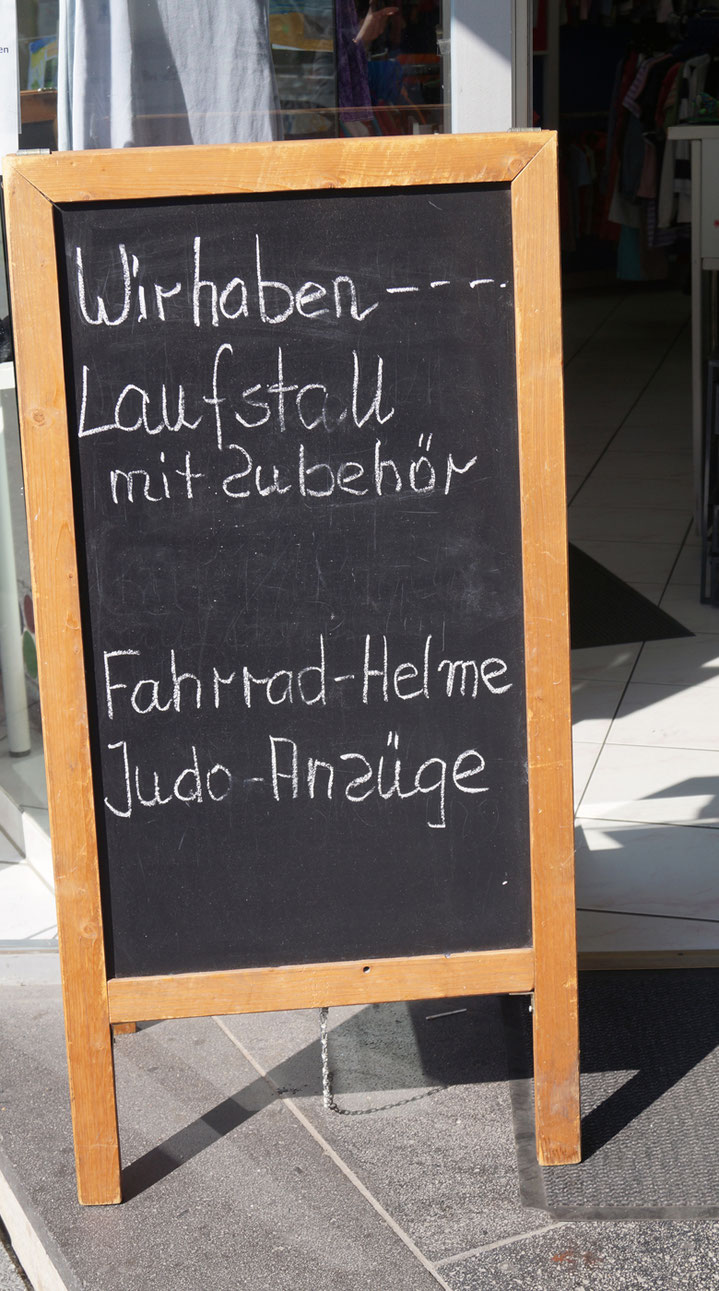 Wir haben ----.
Laufstall
mit Zubehör
Fahrrad-Helme
Judo-Anzüge